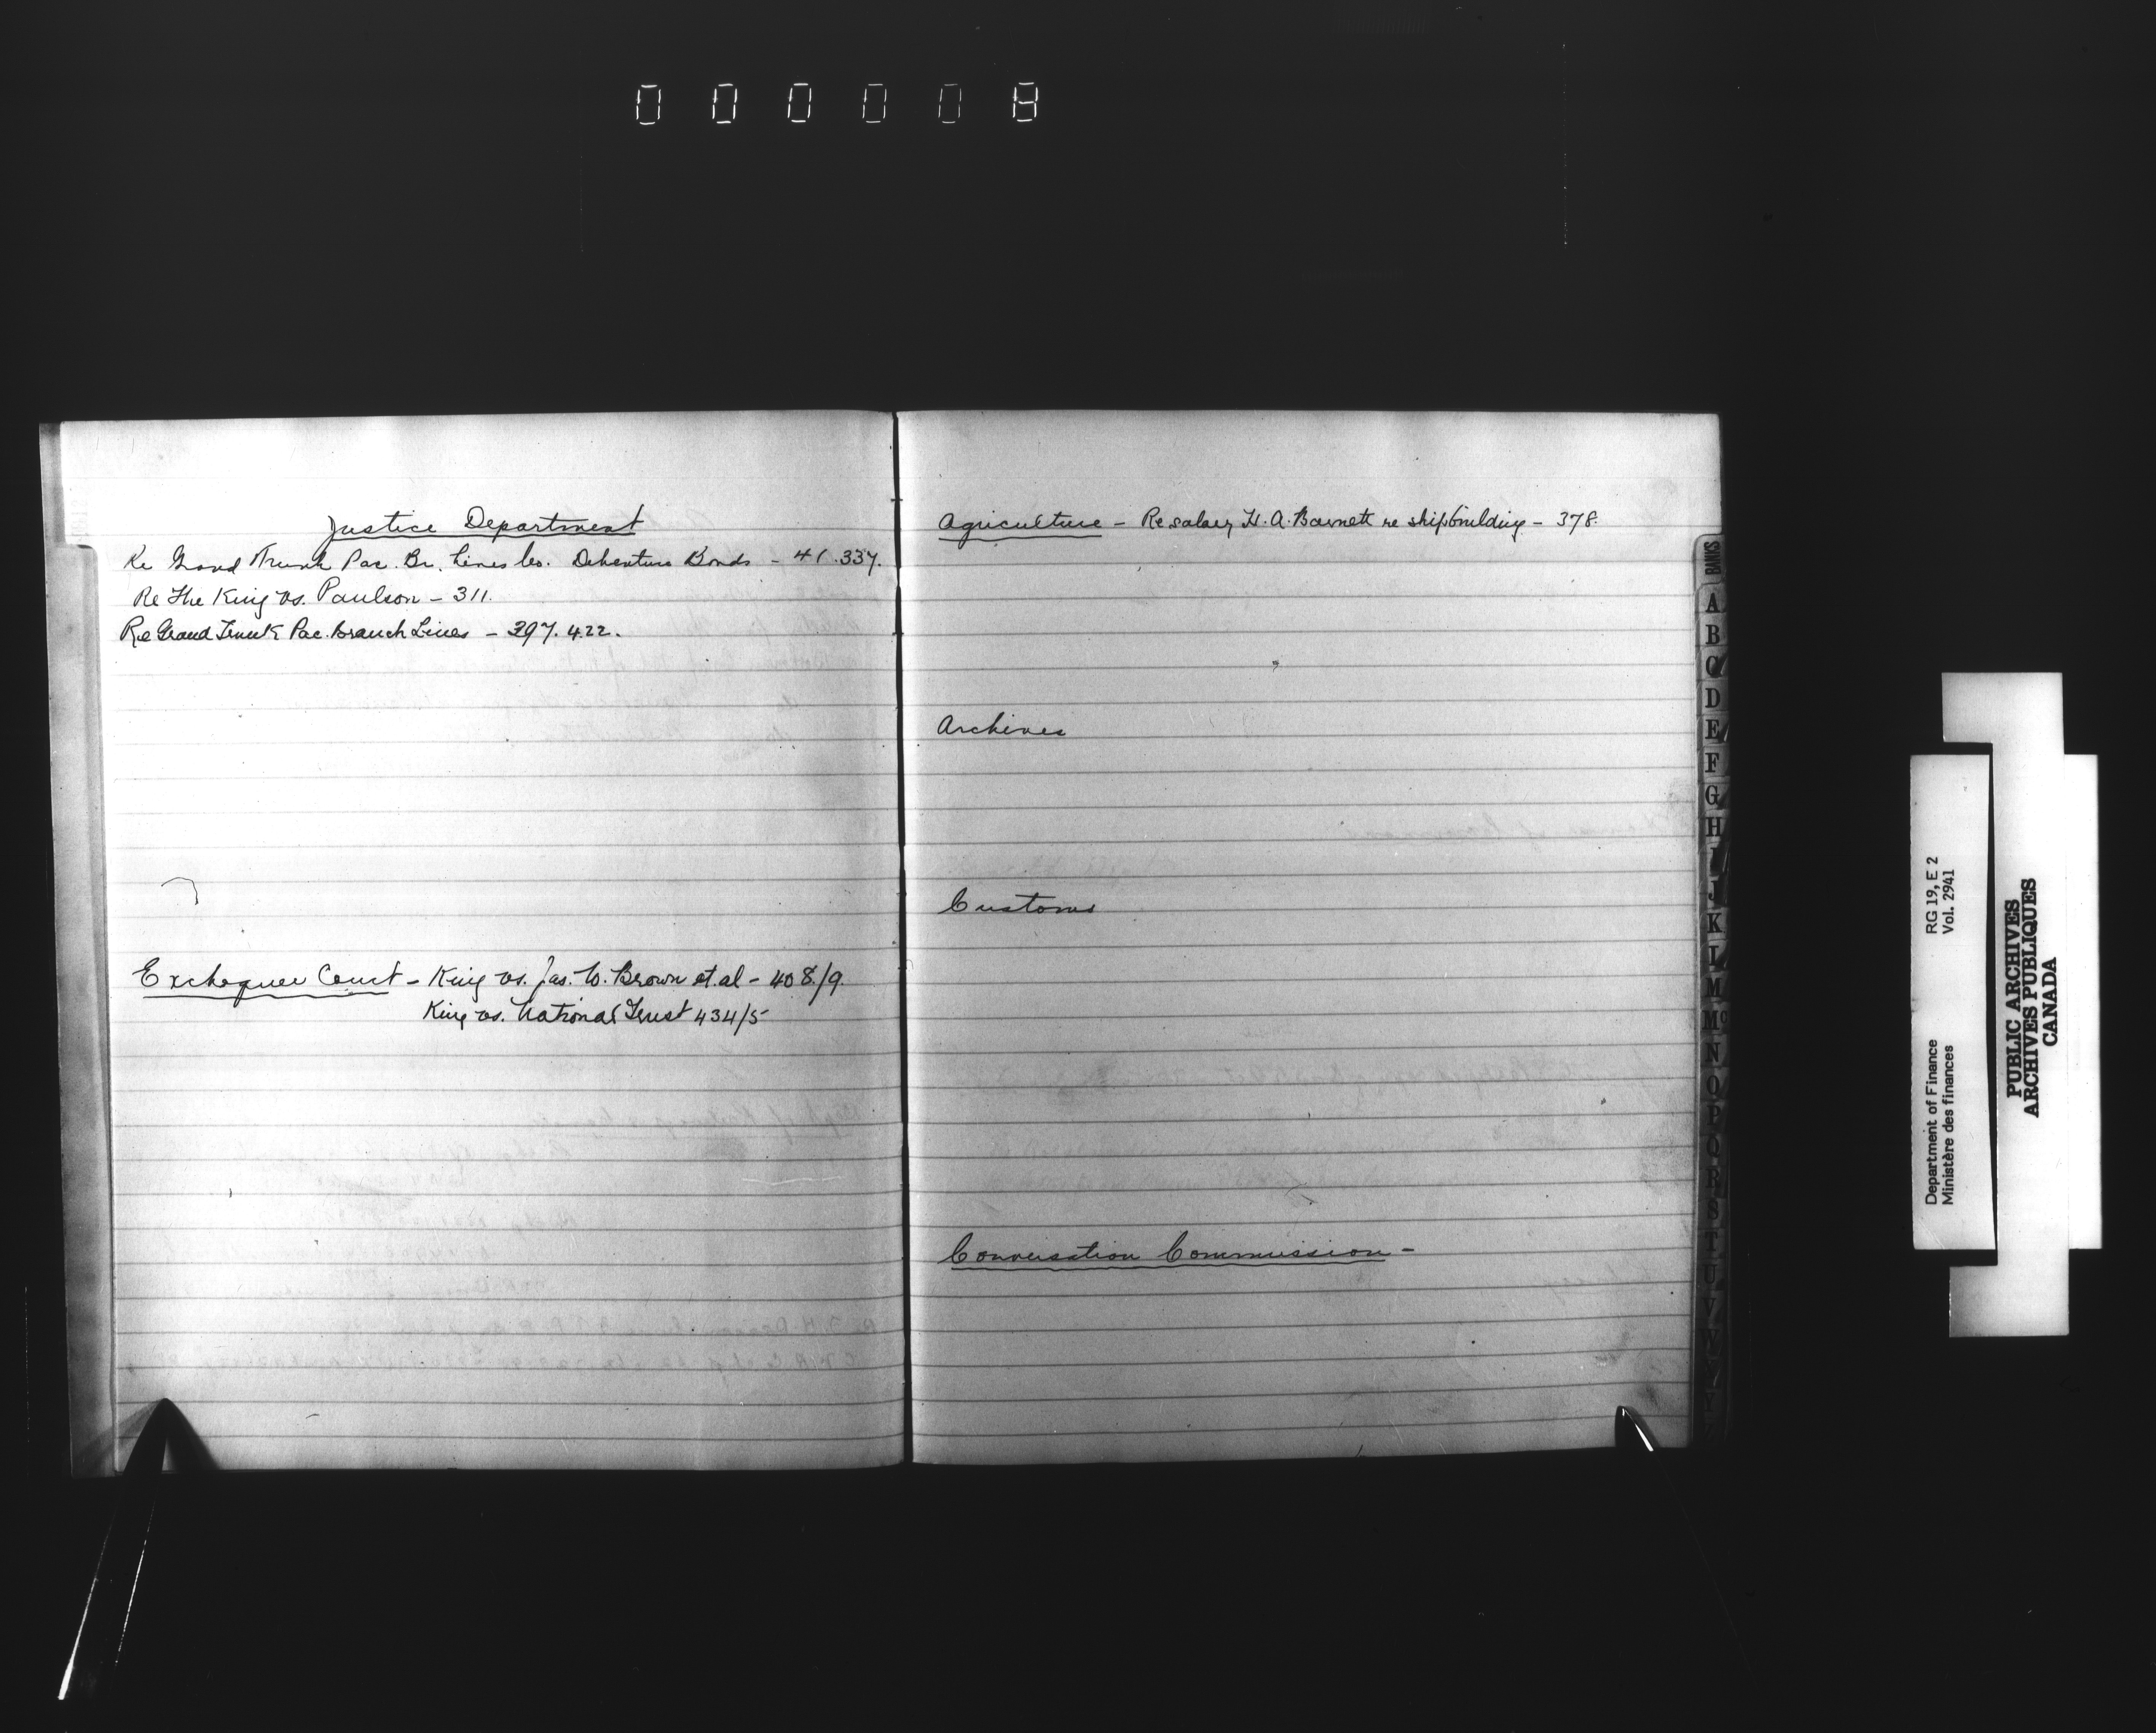 000008
Justice Department
Re Grand Trunk Pac. Br. Lines Co. Debenture Bonds - 41.337.
Re The King vs. Paulson - 311.
Re Grand Trunk Pac. Branch Lines - 397. 422.
Exchequer Court - King vs. Jas. W. Brown et. al - 408/9.
King vs. National Trust 434/5
Agriculture - Re salary H. A. Barnett re shipbuilding - 378.
Archives
Customs
Conversation Commission -
BANKS
A
B
C
D
E
F
G
H
I
J
K
L
M
Mc
N
O
P
Q
R
S
T
U
V
W
Y
RG 19, E 2
Vol. 2941
Department of Finance
Ministère des finances
PUBLIC ARCHIVES
ARCHIVES PUBLIQUES
CANADA